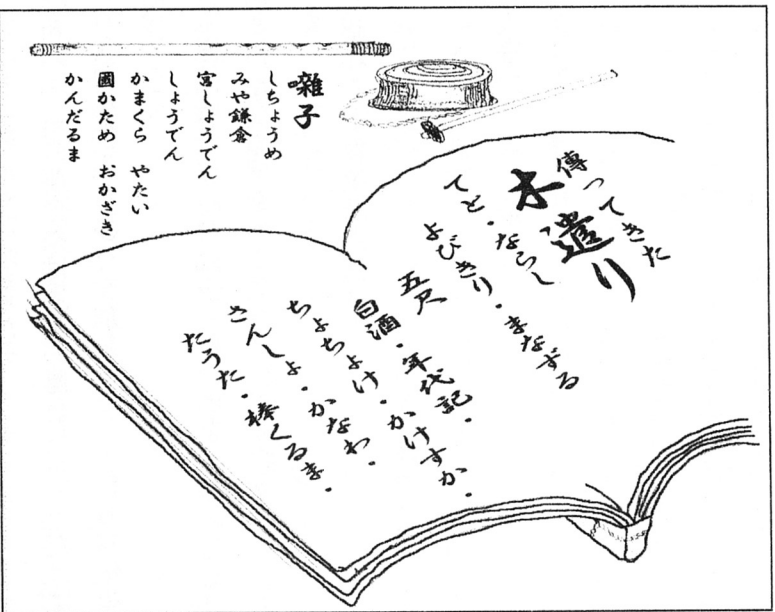 囃子
しちょうめ
みや鎌倉
宮しょうでん
しょうでん
かまくら　やたい
國かため　おかざき
かんだるま
傳ってきた
木遣り
てど・ならし
よびきり・まなずる
五尺
白酒・年代記・
ちょちょけ・かけすか・
さんしょ・かなわ・
たうた・棒くるま・